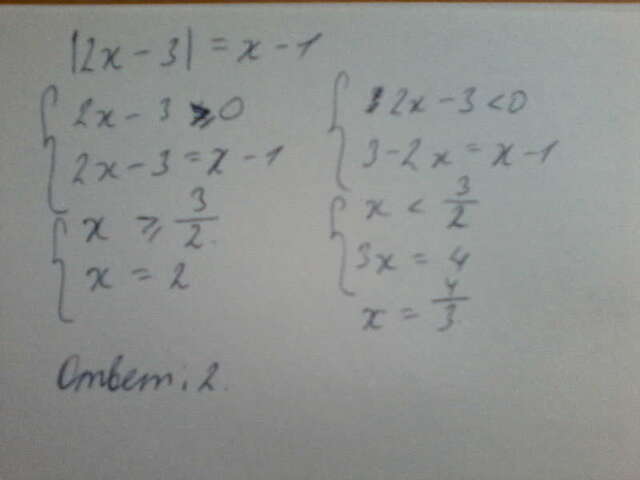 |2x - 3| = x - 1
2x - 3 ⩾ 0
2x - 3 = x - 1
x ⩾ 3/2.
x = 2
2x - 3 < 0
3 - 2x = x - 1
x < 3/2
3x = 4
x = 4/3
Ответ: 2.